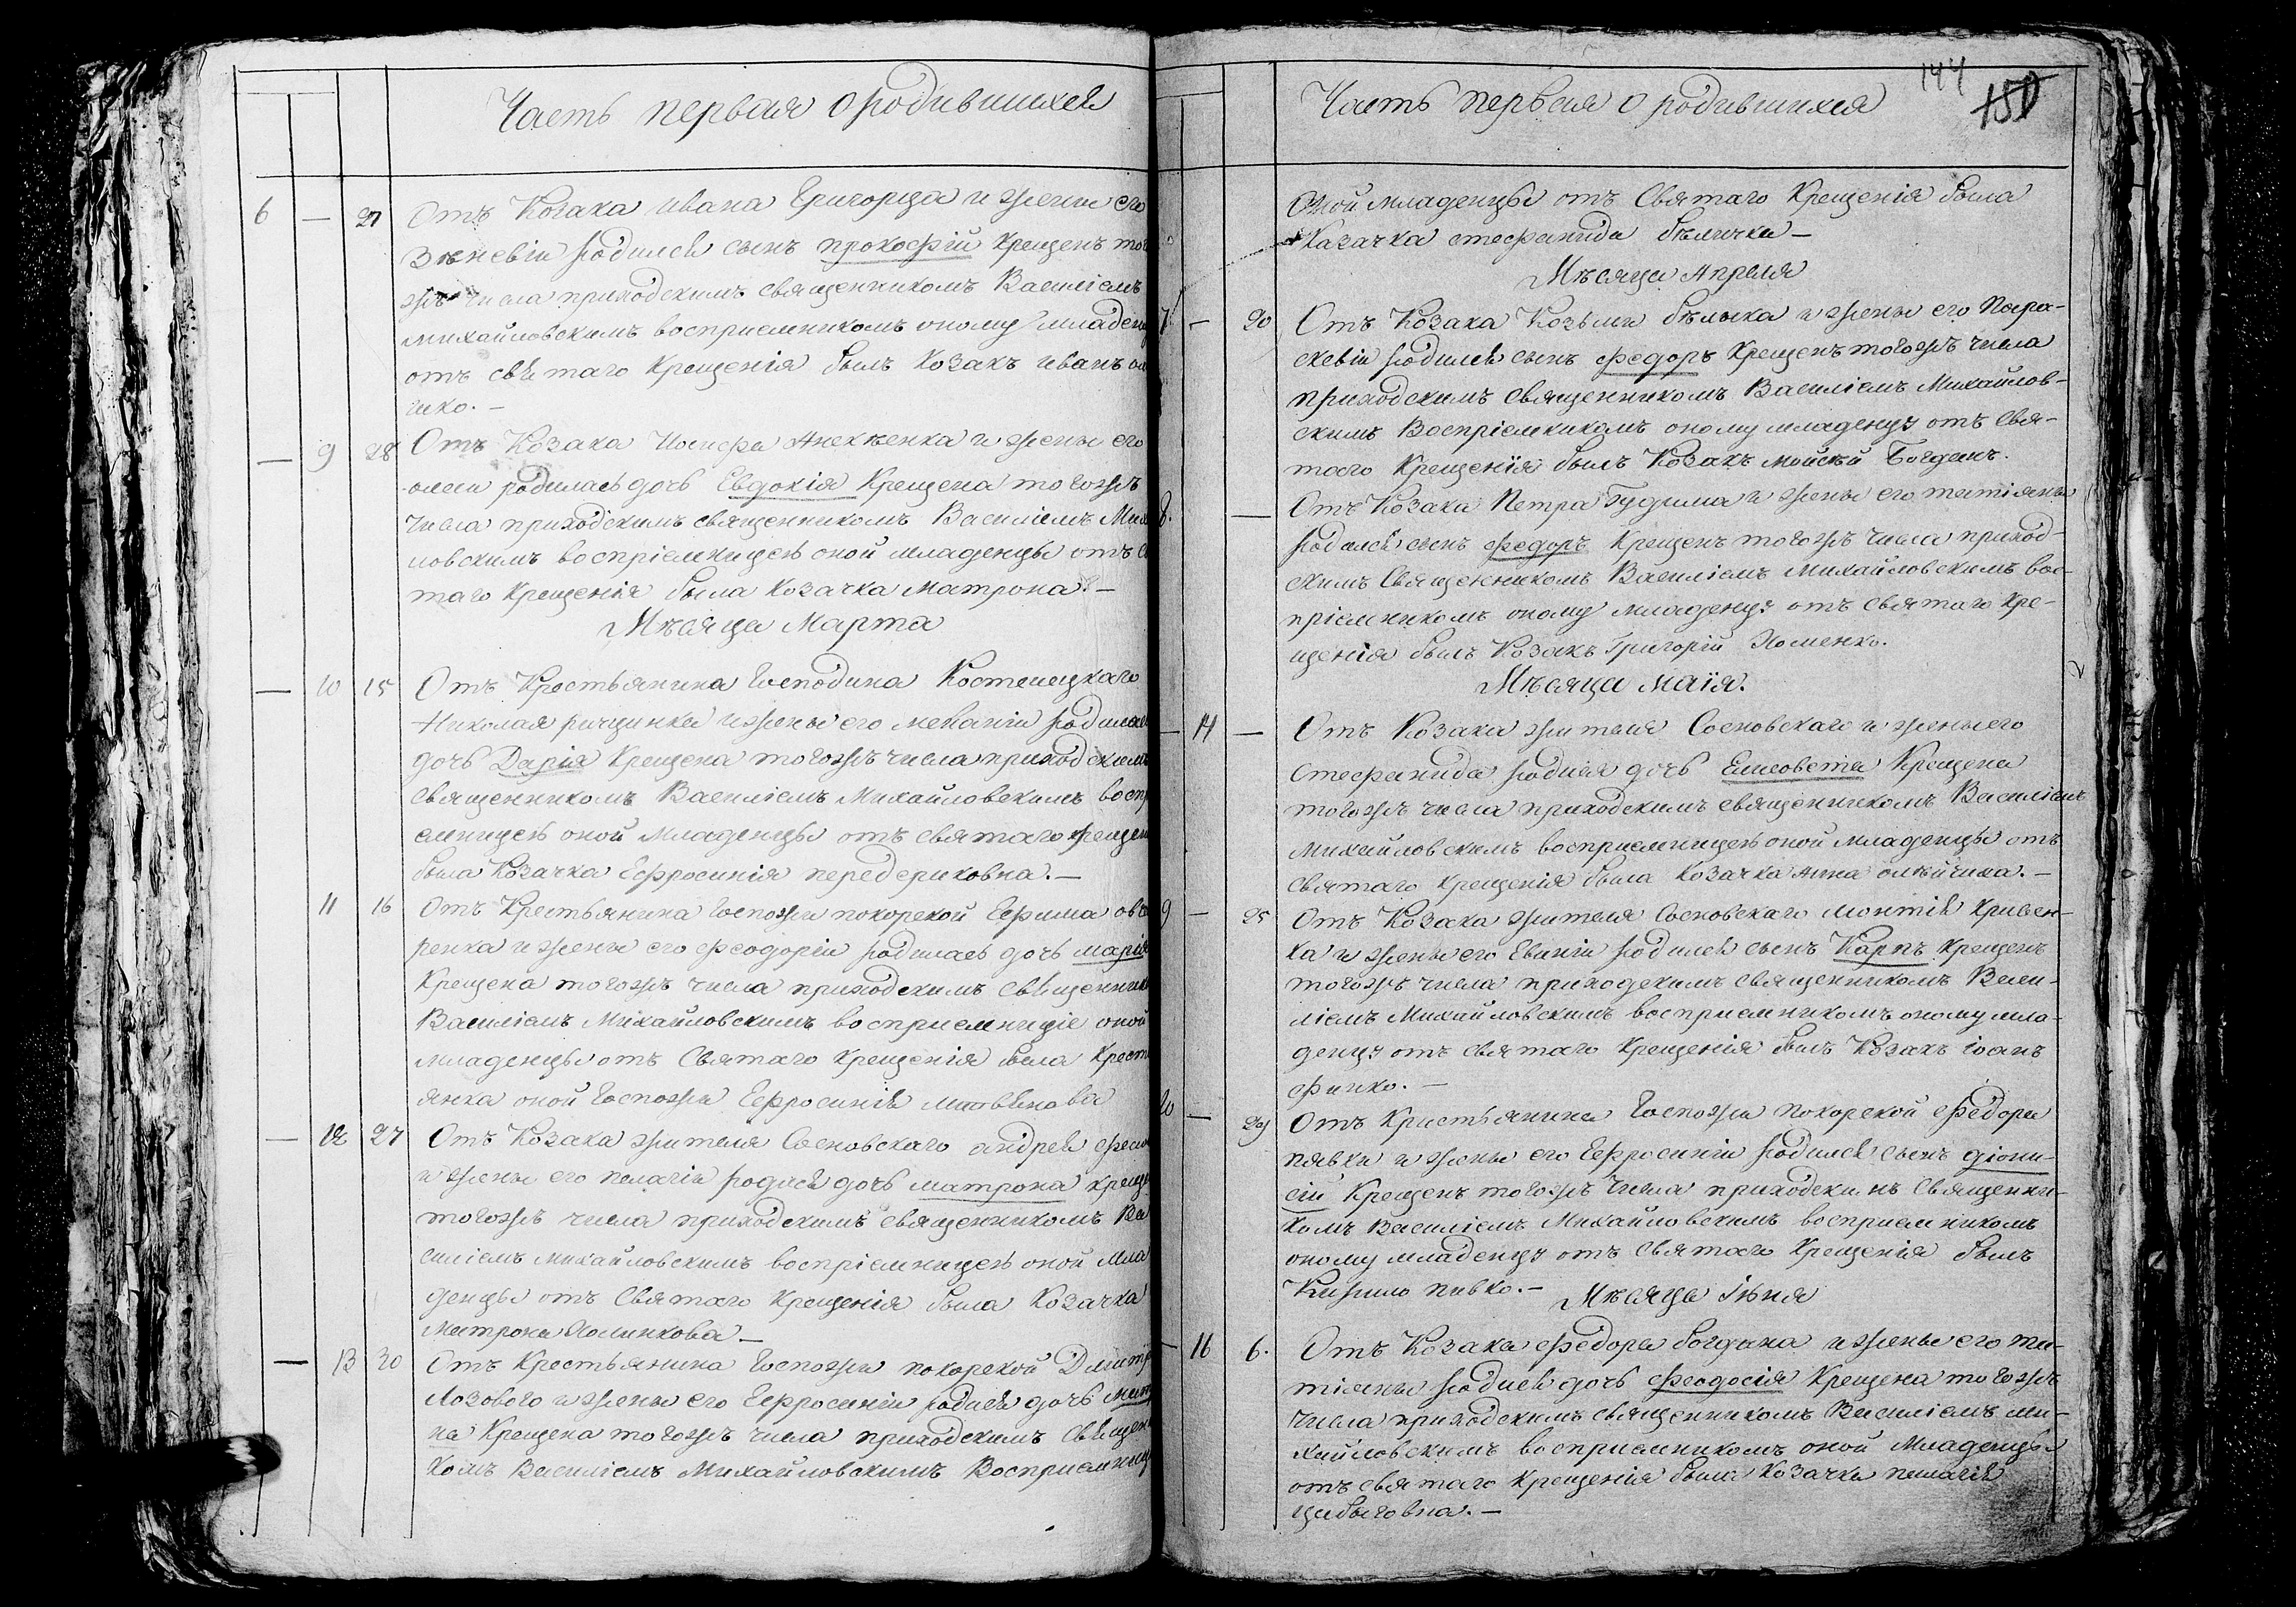 Часть первая о родившихся
6 — 27 Отъ Козака ивана Григорца и жены его
родился сынъ прокофій крещенъ
числа приходскимъ священникомъ Василіемъ
михайловскимъ восприемникомъ оному младен
отъ святаго крещенія былъ Козакъ иванъ
— 9 28 Отъ Козака и жены его
родилась дочь Евдокія крещена тогожъ
числа приходскимъ священникомъ Василіемъ Миха
ловскимъ воспріемницею оной младенцы отъ
таго крещенія была козачка матрона. —
Мѣсяца Марта
— 10 15 Отъ Крестьянина Господина Костенецкаго
Николая и жены его родилась
дочь Дарія крещена тогожъ числа приходскимъ
священникомъ Василіемъ Михайловскимъ воспр
емницею оной младенцы отъ святаго крещен
была Козачка Ефросинія передериковна. —
11 16 Отъ Крестьянина Госпожи покорской Ефима
ренка и жены его феодоріи родилась дочь марія
крещена тогожъ числа приходскимъ священник
Василіемъ Михайловскимъ восприемниціе оной
младенцы отъ Святаго крещенія была крест
янка оной Госпожи Ефросинія
— 12 27 Отъ Козака жителя Сосновскаго андрея
и жены его пелагіи родися дочь матрона креще
тогожъ числа приходскимъ священникомъ Ва
силіемъ михайловскимъ воспріемницею оной мла
денцы отъ Святаго крещенія была Козачка
Матрона —
— 13 30 Отъ Крестьянина Госпожи покорской Дмитр
Лозового и жены его Ефросиніи родися дочь матр
на крещена тогожъ числа приходскимъ священ
комъ Василіемъ Михайловскимъ Восприемниц
144
150
Часть первая о родившихся
Оной младенцы отъ Святаго крещенія была
Казачка стефанида бѣличка —
Мѣсяца Апреля
7 — 20 Отъ Козака Козьмы бѣлыка и жены его Пара-
скевіи родился сынъ федоръ крещенъ тогожъ числа
приходскимъ священникомъ Василіемъ Михайлов-
скимъ Воспріемникомъ оному младенцу отъ Свя-
таго Крещенія былъ Козакъ мойсѣй Богданъ.
8. — Отъ Козака Петра Гудима и жены его татіяны
родился сынъ федоръ крещенъ тогожъ числа приход-
скимъ Священникомъ Василіемъ Михайловскимъ вос-
пріемникомъ оному младенцу отъ святаго кре-
щенія былъ Козакъ Григорій Хоменко.
Мѣсяца маія.
— 14 — Отъ Козака жителя Сосновскаго и жены его
Стефанида родися дочь Елисовета крещена
тогожъ числа приходскимъ священникомъ Василіемъ
михайловскимъ восприемницею оной младенцы отъ
святаго крещенія была Козачка анна олѣйчина. —
9 — 25 Отъ Козака жителя Сосновскаго
ка и жены его родился сынъ Карпъ крещенъ
тогожъ числа приходскимъ священникомъ Васи-
ліемъ Михайловскимъ восприемникомъ оному мла-
денцу отъ святаго крещенія былъ Козакъ іоанъ
—
10 — 29 Отъ Кристьянина Госпожи покорской федора
пявки и жены его Ефросиніи родился сынъ діони-
сій крещенъ тогожъ числа приходскимъ Священни-
комъ Василіемъ Михайловскимъ восприемникомъ
оному младенцу отъ святаго крещенія былъ
Кирило пивко. — Мѣсяца Іюня
— 16 6. Отъ Козака федора богдана и жены его та-
тіяны родися дочь феодосія крещена тогожъ
числа приходскимъ священникомъ Василіемъ ми-
хайловскимъ восприемникомъ оной младенцы
отъ святаго крещенія была Козачка пелагія
цыбыговна. —